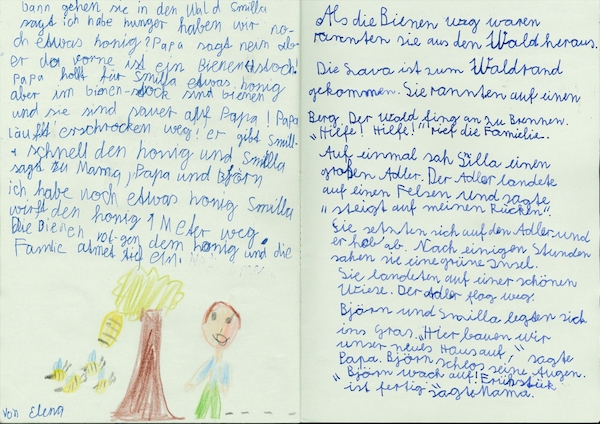 Dann gehen sie in den Wald Smilla
sagt ich habe hunger haben wir no-
ch etwas honig? Papa sagt nein abe-
er da vorne ist ein Bienenstock!
Papa hollt für Smilla etwas honig
aber im bienen-stock sind bienen
und sie sind sauer auf Papa! Papa
läuft erschrocken weg! er gibt Smill-
a schnell den honig und Smilla
sagt zu Mama, Papa und Björn
ich habe noch etwas honig Smilla
wirft den honig 1 Meter weg.
Die Bienen vol-gen dem honig und die
Familie atmet tief ein.
von Elena
Als die Bienen weg waren
rannten sie aus den Wald heraus.
Die Lava ist zum Waldrand
gekommen. Sie rannten auf einen
Berg. Der Wald fing an zu Brennen.
"Hielfe! Hilfe!" rief die Familie.
Auf einmal sah Silla einen
großen Adler. Der Adler landete
auf einen Felsen und sagte
"steigt auf meinen Rücken".
Sie setzten sich auf den Adler und
er hob ab. Nach einigen Stunden
sahen sie eine grüne Insel.
Sie landeten auf einer schönen
Wiese. Der Adler flog weg.
Björn und Smilla legten sich
ins Gras. "Hier bauen wir
unser neues Haus auf," sagte
Papa. Björn schlos seine Augen.
"Björn wach auf! Früstük
ist fertig" sagte Mama.